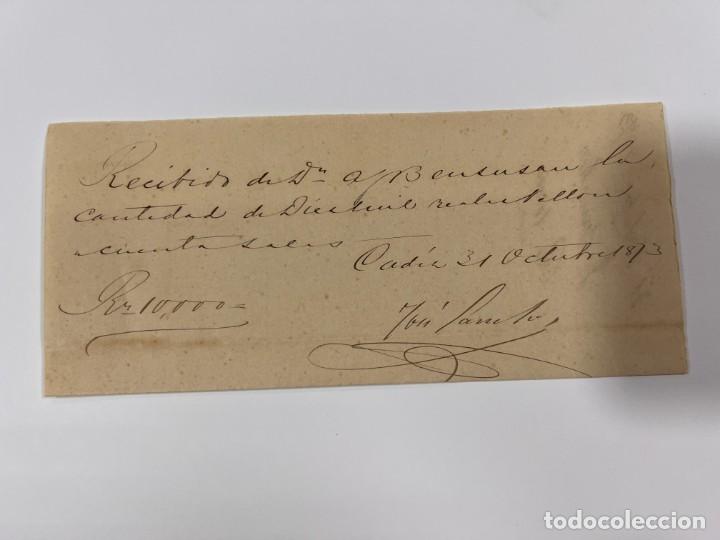 Recibido de Dn A J Bensusan la
cantidad de Diesmil reales Vellon
a cuenta sales
Cadiz 31 Octubre 1873
Rn 10,000=
José
todocoleccion
todocoleccion.net